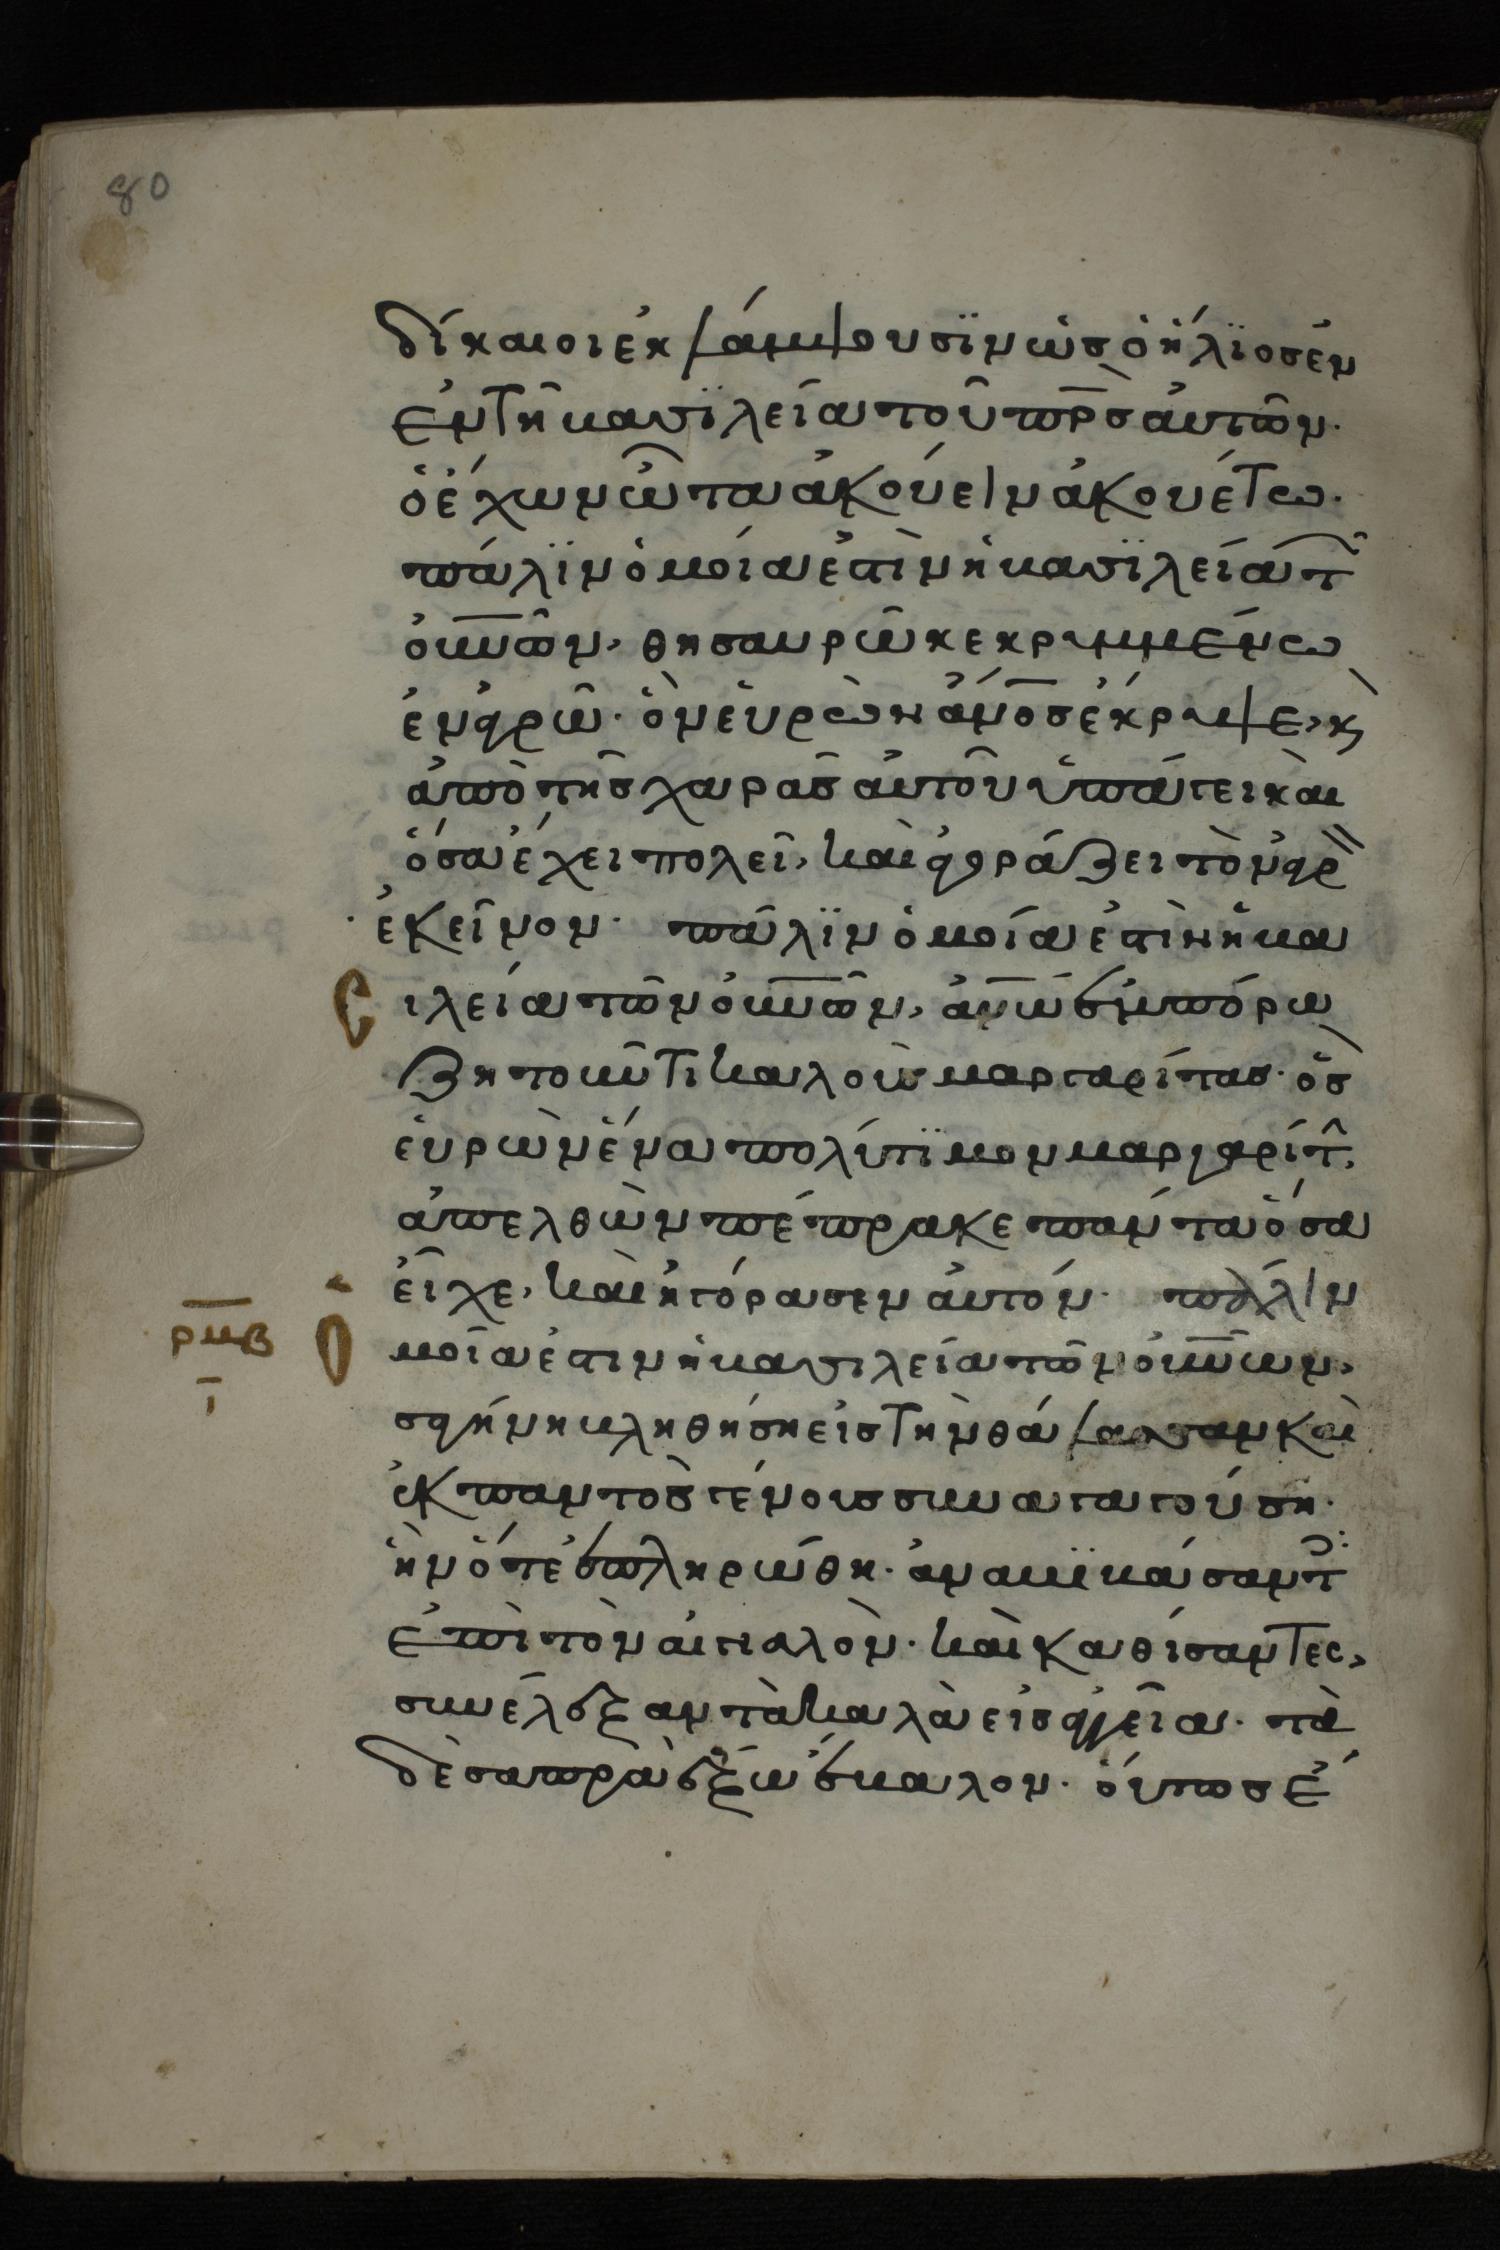 80
δίκαιοι ἐκλάμψουσϊν ὡς ὁ ἥλϊος ἐν
ἐν τῆ βασϊλεία τοῦ πρ̅ς αὐτῶν·
ὁ ἔχων ὦτα ἀκούειν ἀκουέτω·
πάλϊν ὁμοία ἐστὶν ἡ βασϊλεία τ
οὐν̅ῶν, θησαυρῶ κεκρυμμένω
ἐν ἀγρῶ· ὃν εὑρὼν ἄν̅ος ἔκρυψε, κ
ἀπὸ τῆς χαρᾶς αὐτοῦ ὑπάγει καὶ
ὅσα ἔχει πολεῖ, καὶ ἀγοράζει τὸν ἀγρ
ἐκεῖνον· πάλϊν ὁμοία ἐστὶν ἡ βα
σιλεία τῶν οὐν̅ῶν, ἀν̅ω ἐμπόρω
ζητοῦντι καλοὺς μαργαρίτας· ὃς
εὑρὼν ἕνα πολύτϊμον μαργαρίτ,
ἀπελθὼν πέπρακε πάντα ὅσα
εἶχε, καὶ ἠγόρασεν αὐτόν· πάλιν
ρμβ
ι
Ὁ μοία ἐστιν ἡ βασιλεία τῶν οὐν̅ων,
σαγήνη βληθήση εἰς τὴν θάλασσαν καὶ
ἐκ παντὸς γένους συναγαγούση·
ἣν ὅτε ἐπληρώθη· ἀναβϊβάσαντ
ἐπὶ τὸν αἰγιαλὸν· καὶ καθίσαντες,
συνέλεξαν τὰ καλὰ εἰς ἀγγεῖα· τὰ
δὲ σαπρὰ ἔξω ἔβαλον· οὕτως ἔ